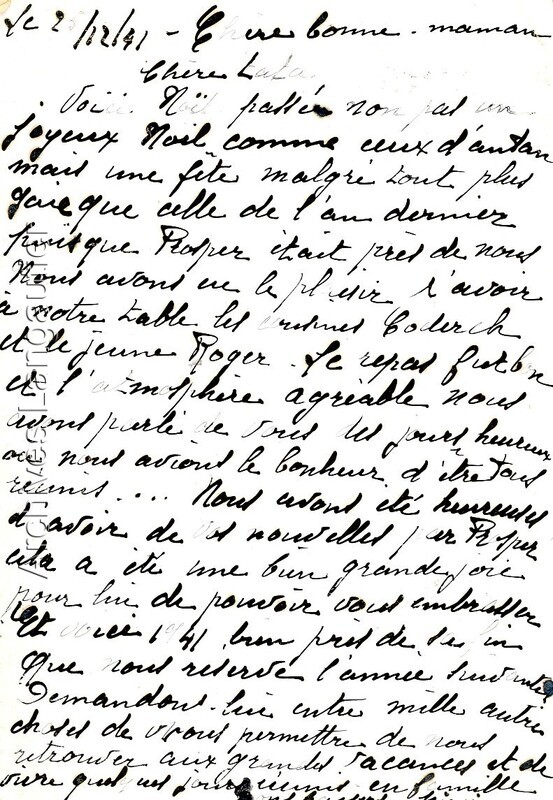 Le 26/12/41 - Chère bonne-maman
Chère Lala
Voici Noël passée non pas un
joyeux Noël comme ceux d'antan
mais une fête malgré tout plus
gaie que celle de l'an dernier
puisque Prosper était près de nous
Nous avons eu le plaisir d'avoir
à notre table les cousines Coderch
et le jeune Roger. Le repas fut bon
et l'atmosphère agréable nous
avons parlé de vous des jours heureux
où nous avions le bonheur d'être tous
réunis.... Nous avons été heureuses
d'avoir de vos nouvelles par Prosper
cela a été une bien grande joie
pour lui de pouvoir vous embrasser
Et voici 1941 bien près de sa fin
Que nous réserve l'année suivante
Demandons-lui entre mille autres
choses de nous permettre de nous
retrouver aux grandes vacances et de
vivre quelques jours réunis en famille
Archives